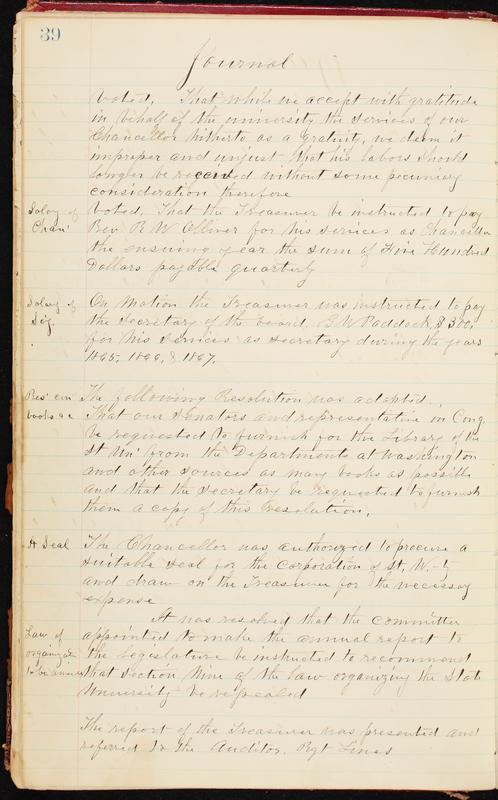 39
Journal
Voted. That while we accept with gratitude
in behalf of the university the services of our
Chancellor hitherto as a Gratuity, we deem it
improper and unjust that his labors should
longer be received without some pecuniary
consideration therefore
Salary of
Chan'
Voted, That the Treasurer be instructed to pay
Rev R W Oliver for his services as Chancellor
the ensuing year the sum of Five Hundred
Dollars payable quarterly
Salary of
On Motion the Treasurer was instructed to pay
the Secretary of the board G. W Paddock, $300.
for his services as secretary during the years
1865, 1866, & 1867.
Res'
books
The following Resolution was adopted.
That our Senators and representative in Cong
be requested to furnish for the Library of the
St Un' from the Departments at Washington
and other sources as many books as possible
and that the Secretary be requested to furnish
them a copy of this resolution.
A Seal
The Chancellor was authorized to procure a
suitable seal for the Corporation of St,
and draw on the Treasurer for the necessary
expense
It was resolved that the committee
Law of
organiz
to be
appointed to make the annual report to
the Legislature be instructed to recommend
that section Nine of the law organizing the State
University be repealed
The report of the Treasurer was presented and
referred to the Auditor.